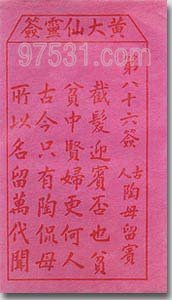 黃大仙靈簽
97531.com
第八十六簽
古人陶母留賓
截髮迎賓否也貧
貧中賢婦更何人
古今只有陶侃母
所以名留萬代聞